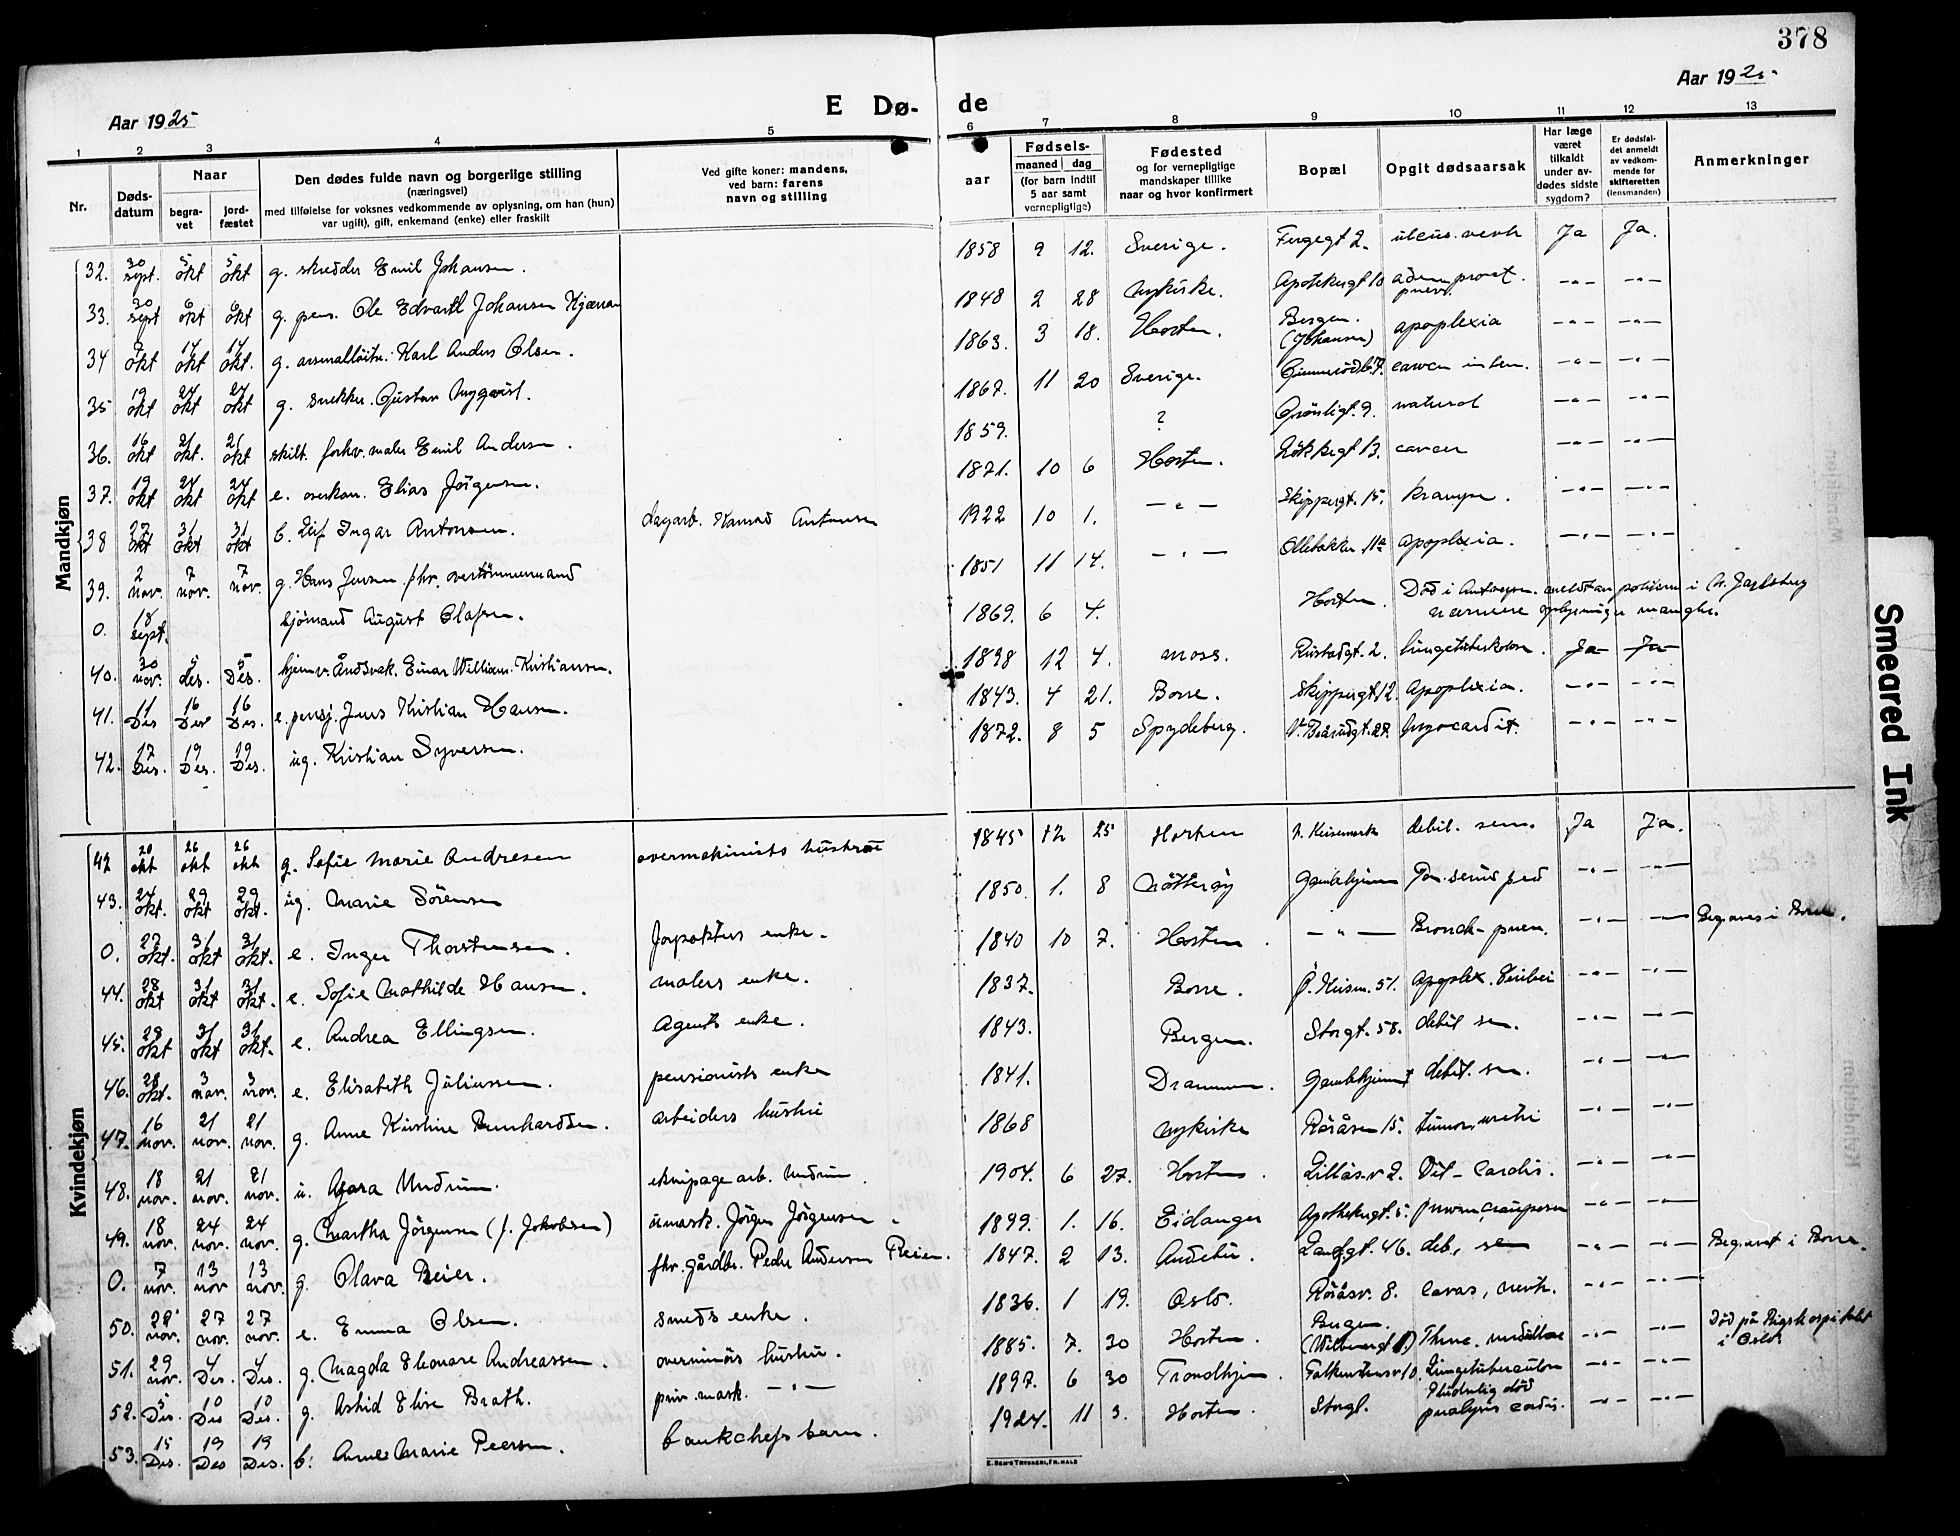 378
Aar 1925
E Dø- de
Aar 1925
1 2 3 4 5 6 7 8 9 10 11 12 13
Nr.
Døds-datum
Naar
begra-vet
jord-fæstet
Den dødes fulde navn og borgerlige stilling
(næringsvei)
med tilføielse for voksnes vedkommende av oplysning, om han (hun)
var ugift), gift, enkemand (enke) eller fraskilt
Ved gifte koner: mandens,
ved barn: farens
navn og stilling
aar
Fødsels-
maaned dag
(for barn indtil
5 aar samt
vernepligtige)
Fødested
og for vernepligtige
mandskaper tillike
naar og hvor konfirmert
Bopæl
Opgit dødsaarsak
Har læge
været
tilkaldt
under av-
dødes sidste
sygdom?
Er dødsfal-
det anmeldt
av vedkom-
mende for
skifteretten
(lensmanden)
Anmerkninger
Mandkjøn
32. 30 sept. 5 okt 5 okt g. skrædder Emil Johansen. 1858 9 12. Sverige. Fergegt 2. ulcus. ventr Ja Ja.
33. 30 sept 6 okt 6 okt g. pens. Ole Edvardt Johansen Kjærran 1848 2 28 Nykirke. Apotekergt 10 -"- -"-
34 9 okt 17 okt 17 okt. g. Karl Anders Olsen. 1863. 3 18. Horten. Bergen. (Johansen) apoplexia -"- -"-
35 19 okt 24 okt 24 okt. g. snekker. Gustav Nyqvist. 1867. 11 20 Sverige. -"- -"-
36. 16 okt 21 okt. 21 okt skilt. forhv. maler Emil Andersen. 1859. ? Grønligt. 9. natural -"- -"-
37. 19 okt 24 okt 24 okt e. Elias Jörgensen. 1871. 10 6 Horten. cancer -"- -"-
38 27 okt 31 okt 31 okt b. Leif Ingar Antonsen. dagarb. Konrad Antonsen 1922 10 1. -"- Skippergt. 15. krampe. -"- -"-
39. 2 nov. 7 nov. 7 nov. g. Hans Jensen fhv. overtömmermand 1851 11 14. -"- Ollebakken 11a apoplexia. -"- -"-
0. 18 sept. sjömand August Olafsen. 1869. 6 4. Horten. Död i Antwerpen. meldt av politiem. i N. Jarlsberg
nærmere oplysninger mangler.
40. 30 nov. 5 des. 5 Des. hjemv. Åndsvak. Einar William. Kristiansen. 1898 12 4. Moss. Rustadgt. 2. lungetuberkulose. Ja Ja
41. 11 Des 16 Des 16 Des. e. pensj. Jens Kristian Hansen. 1843. 4 21. Borre. Skippergt. 12. Apoplexia. -"- -"-
42. 17 Des. 19 Des. 19 Des. ug. Kristian Syversen. 1872. 8 5 Spydeberg. myocardit. -"- -"-
Kvindekjøn
42 20 okt 26 okt 26 okt g. Sofie Marie Andresen overmaskinists hustru 1845 12 25 Horten debil. sen. Ja Ja.
43. 24 okt. 29 okt 29 okt. ug. Marie Sörensen 1850. 1. 8 Nötteröy Gamlehjem -"- -"-
0. 27 okt. 31 okt 31 okt. e. Inger Thorstensen. Forpakters enke. 1840 10 7. Horten. -"- Bronch-pneu. -"- -"- Begraves i Borre.
44. 28 okt 31 okt 31 okt. e. Sofie Mathilde Hansen. malers enke. 1837. Borre. Ø. Keisem. 51. -"- -"-
45. 28 okt 31 okt 31 okt. e. Andrea Ellingsen. Agents enke. 1843. Bergen. Storgt. 58. debil sen. -"- -"-
46. 28 okt. 3 nov. 3 nov. e. Elisabeth Juliussen. pensionists enke 1841. Drammen. Gamlehjemmet debil. sen. -"- -"-
47. 16 nov. 21 nov. 21 nov. g. Anne Kristine Bernhardsen. arbeiders hustru 1868 Nykirke Röråsen 15. -"- -"-
48. 18 nov. 21 nov. 21 nov. u. Agara Undrum. ekvipagearb. Undrum 1904. 6 27. Horten. Lillås.v 2. Vit-cordis. -"- -"-
49. 18 nov. 24 nov. 24 nov. g. Martha Jörgensen (f. Jakobsen) umask. Jörgen Jörgensen 1899. 1. 16. Eidanger Apothekergt. 5. -"- -"-
0. 7 nov. 13 nov 13 nov. g. Olava Reier. fhv. gårdbr. Peder Andersen Reier. 1847. 2 13. Andebu. Langgt. 46. deb, sen -"- -"- Begravet i Borre.
50. 22 nov. 27 nov. 27 nov. e. Emma Olsen. smeds enke. 1836. 1 19. Oslo. Röråsv. 8. -"- -"-
51. 29 nov. 4 Des. 4 Des. g. Magda Elenore Andreassen. overminörs hustru. 1885. 7. 30 Horten. Bergen. -"- -"- Död på Rigshospitalet
i Oslo.
52. 5 Des. 10 Des 10 Des. g. Astrid Elise Brath. priv. mask. -"- 1897. 6 30 Trondhjem. Falkenstensv 10. Lungetuberculose -"- -"-
53. 15 Des. 19 Des 19 Des. b. Anne Marie Peersen. bankchefs barn. 1924. 11 3. Horten. Storgt. Pludselig död paralysis cordis. -"- -"-
E. Sem's Trykkeri, Fr.hald
Smeared Ink